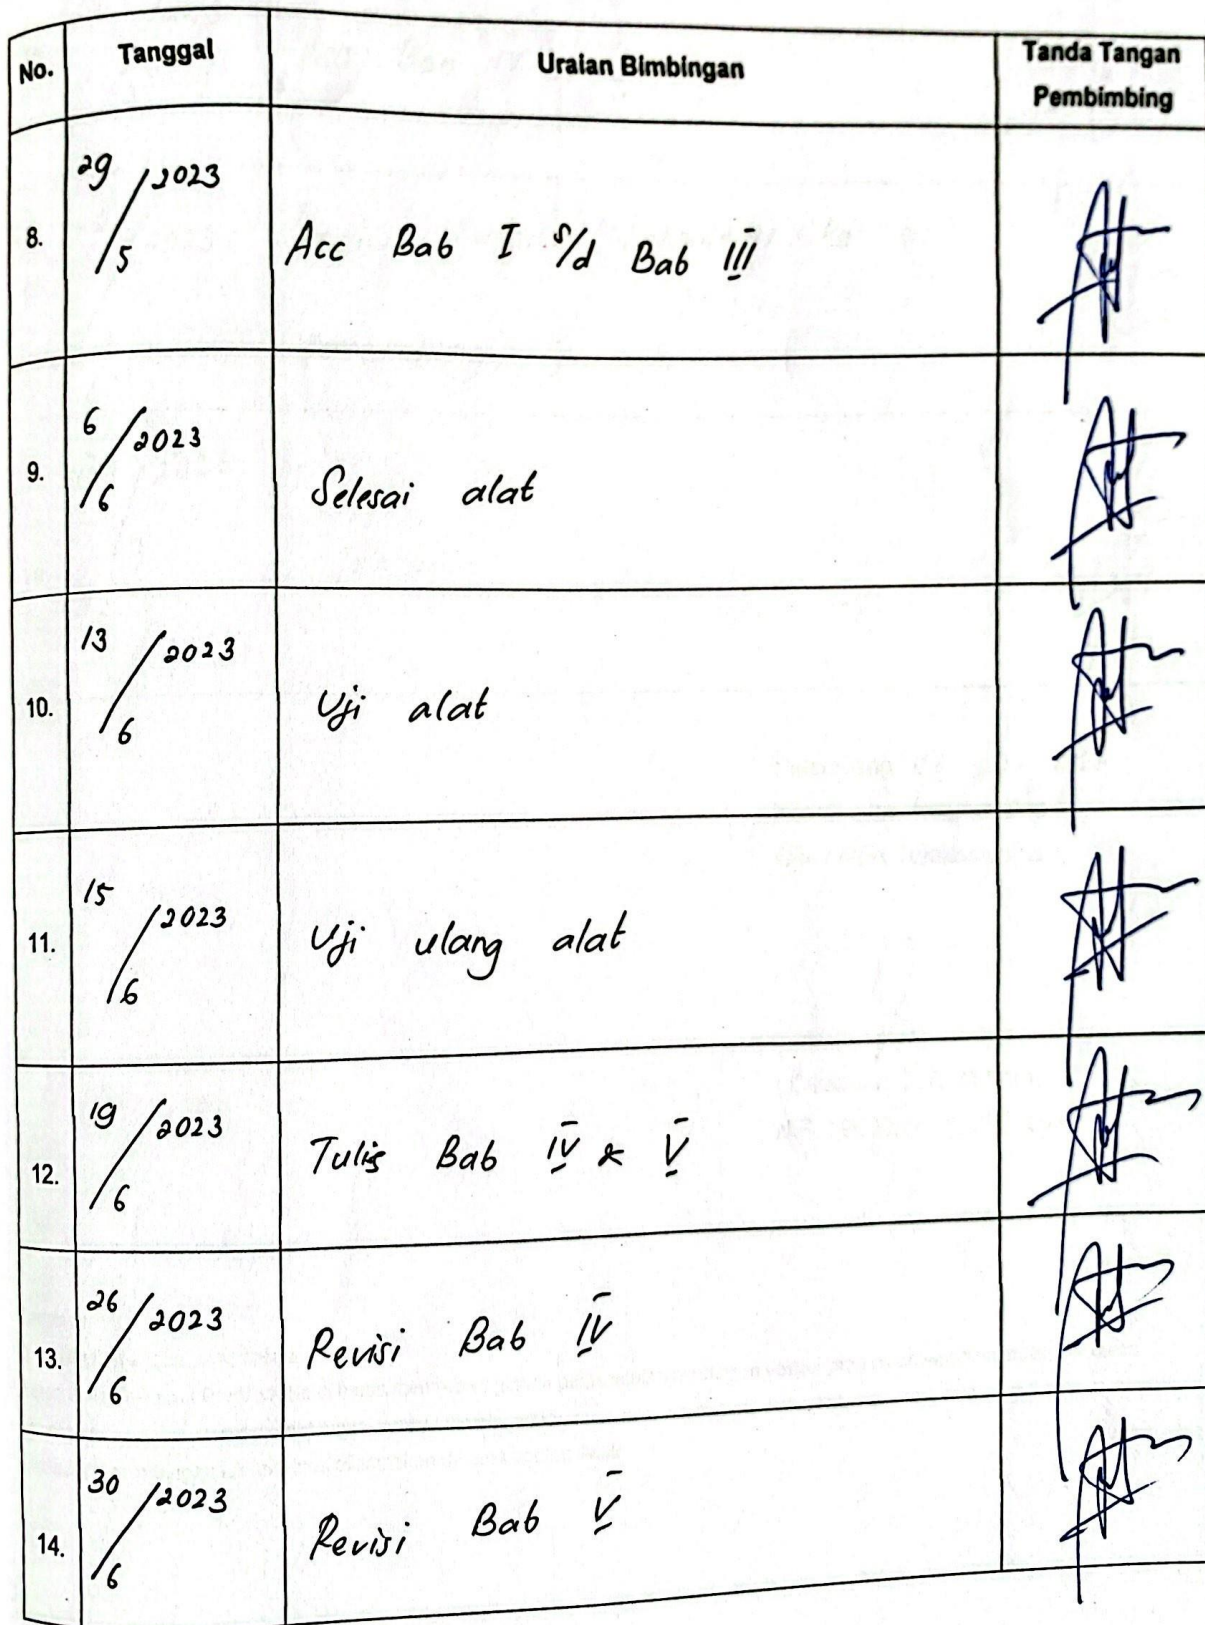 No. Tanggal Uraian Bimbingan Tanda Tangan
Pembimbing
8. 29/5/2023 Acc Bab I s/d Bab III
9. 6/6/2023 Selesai alat
10. 13/6/2023 Uji alat
11. 15/6/2023 Uji ulang alat
12. 19/6/2023 Tulis Bab IV & V
13. 26/6/2023 Revisi Bab IV
14. 30/6/2023 Revisi Bab V